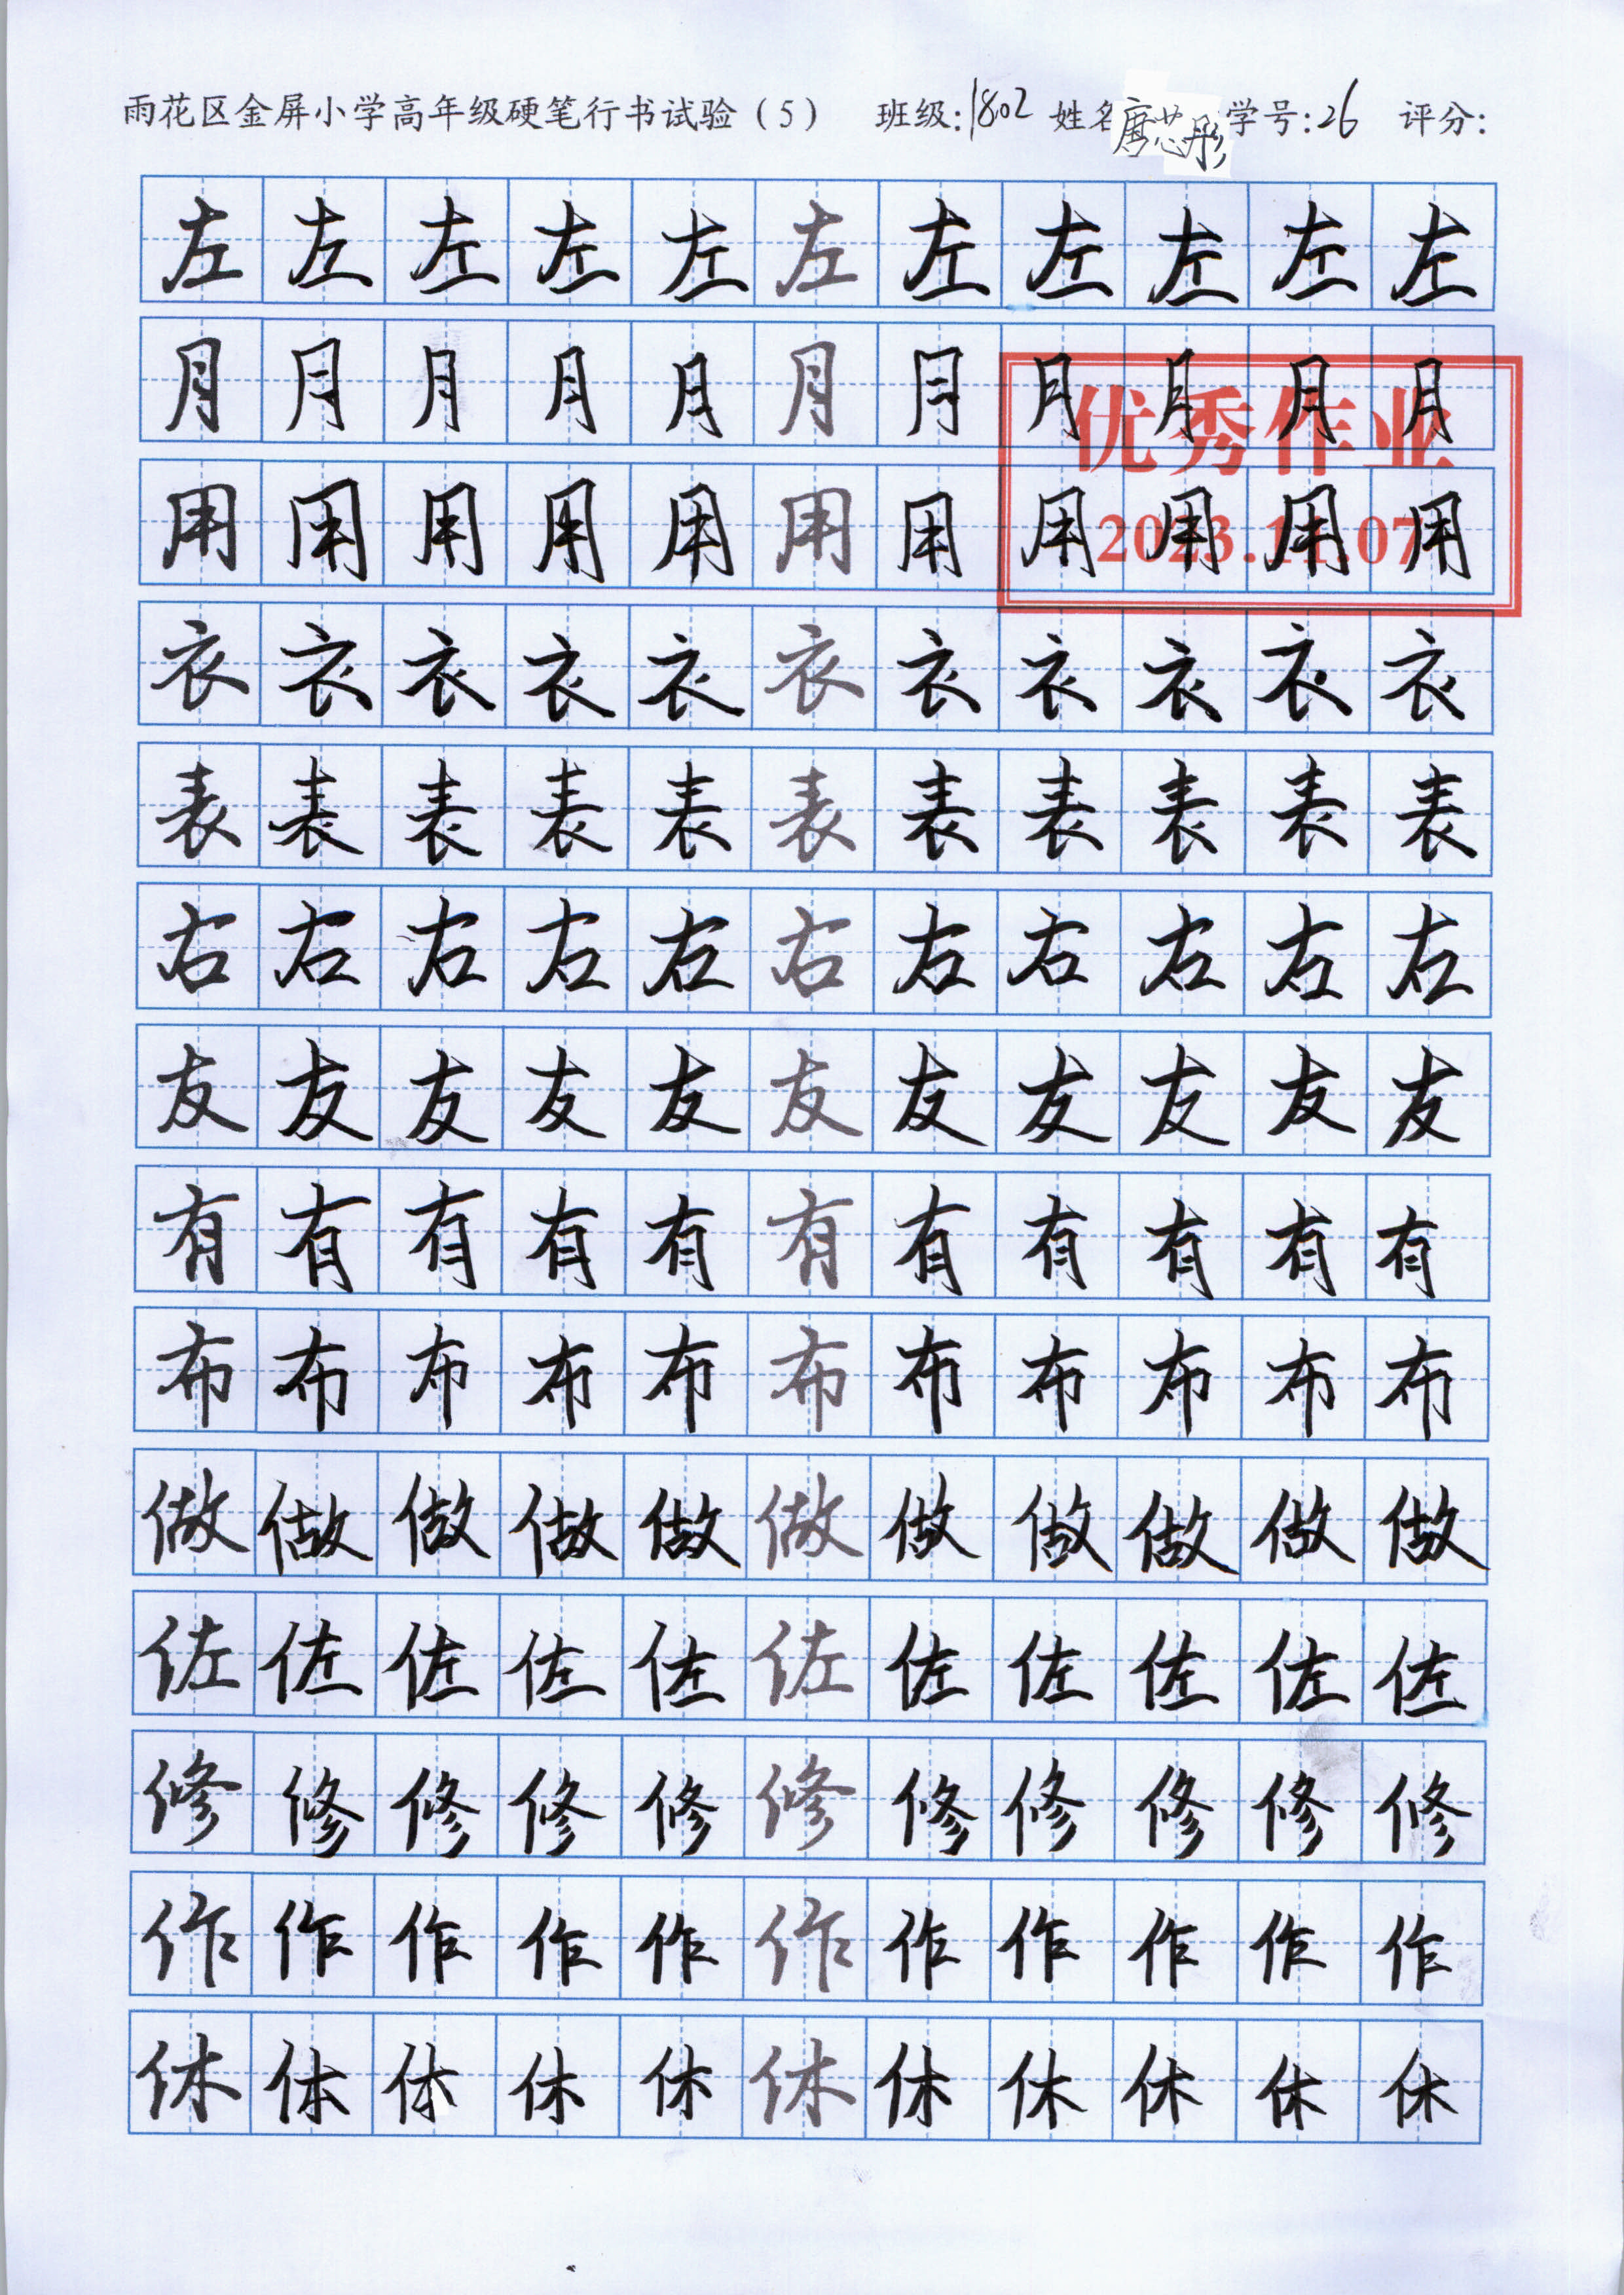 雨花区金屏小学高年级硬笔行书试验（5） 班级:1802 姓名 唐芯彤 学号:26 评分:
左 左 左 左 左 左 左 左 左 左 左
月 月 月 月 月 月 月 月 月 月 月
优秀作业
用 用 用 用 用 用 用 用 用 用 用
2023.11.07
衣 衣 衣 衣 衣 衣 衣 衣 衣 衣 衣
表 表 表 表 表 表 表 表 表 表 表
右 右 右 右 右 右 右 右 右 右 右
友 友 友 友 友 友 友 友 友 友 友
有 有 有 有 有 有 有 有 有 有 有
布 布 布 布 布 布 布 布 布 布 布
做 做 做 做 做 做 做 做 做 做 做
佐 佐 佐 佐 佐 佐 佐 佐 佐 佐 佐
修 修 修 修 修 修 修 修 修 修 修
作 作 作 作 作 作 作 作 作 作 作
休 休 休 休 休 休 休 休 休 休 休